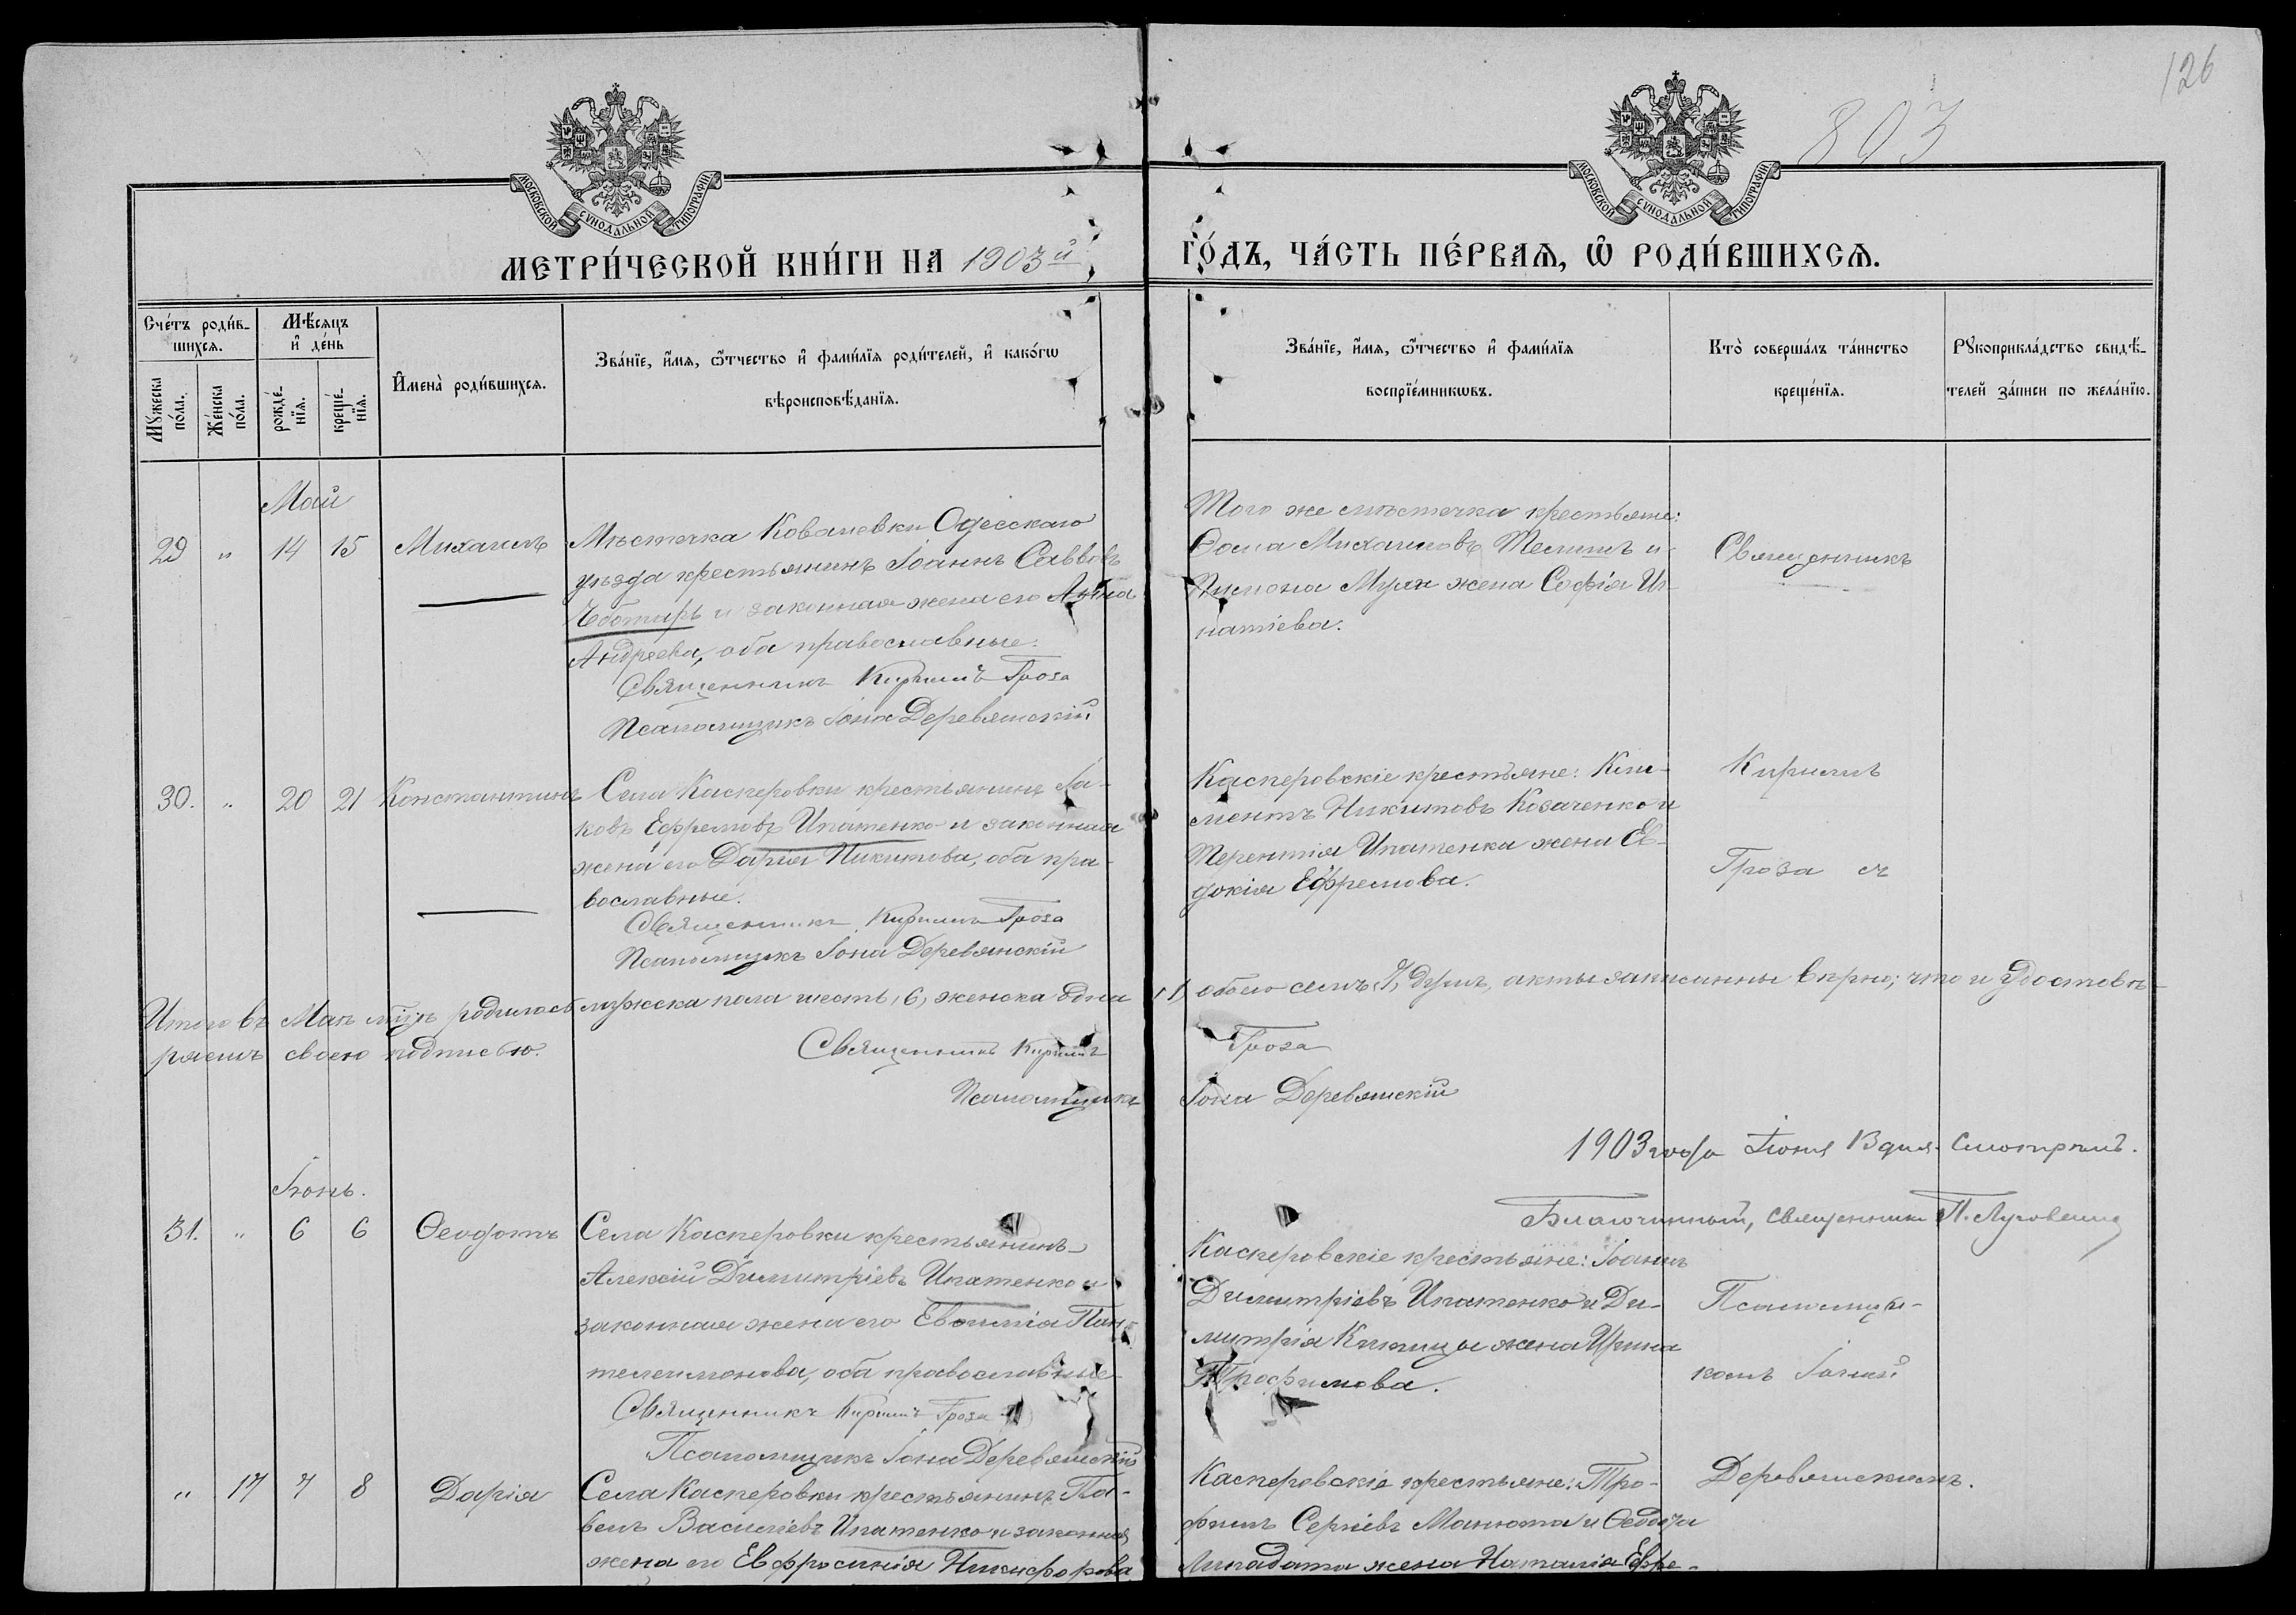 126
803
МОСКОВСКОЙ СѴНОДАЛЬНОЙ ТИПОГРАФІИ
МОСКОВСКОЙ СѴНОДАЛЬНОЙ ТИПОГРАФІИ
МЕТРИ́ЧЕСКОЙ КНИ́ГИ НА 1903й
ГО́ДЪ, ЧА́СТЬ ПЕ́РВАѦ, Ѡ҆ РОДИ́ВШИХСѦ.
Сче́тъ роди́в-
шихсѧ.
Мꙋжеска
по́ла.
Же́нска
по́ла.
Мѣ́сѧцъ
и҆ де́нь
рожде́-
нїѧ.
креще́-
нїѧ.
И҆мена̀ роди́вшихсѧ.
Зва́нїе, и҆́мѧ, ѻ҆́тчество и҆ фами́лїѧ роди́телей, и҆ како́гѡ
вѣроисповѣ́данїѧ.
Зва́нїе, и҆́мѧ, ѻ҆́тчество и҆ фами́лїѧ
воспрїе́мникѡвъ.
Кто̀ соверша́лъ та́инство
креще́нїѧ.
Рꙋкоприкла́дство свидѣ́-
телей за́писи по жела́нїю.
Май
29 " 14 15 Михаилъ
Мѣстечка Ковалевки Одесскаго
уѣзда крестьянинъ Іоаннъ Саввовъ
Чеботарь и законная жена его Анна
Андреева, оба православные.
Священникъ Кириллъ Гроза
Псаломщикъ Іона Деревянскій
Того же мѣстечка крестьяне:
Ѳома Михаиловъ и
жена Софія Иг-
натіева.
Священникъ
30. " 20 21 Константинъ
Села Касперовки крестьянинъ Іа-
ковъ Ефремовъ Ипатенко и законная
жена его Дарія Никитова, оба пра-
вославные.
Священникъ Кириллъ Гроза
Псаломщикъ Іона Деревянскій
Касперовскіе крестьяне: Кли-
ментъ Никитовъ Козаченко и
Терентія Ипатенка жена Ев-
докія Ефремова.
Кириллъ
Гроза съ
Итого въ Маѣ мцѣ родилось мужеска пола шесть, 6, женска одна
, 1, обоего семь, 7, душъ, акты записанны вѣрно; что и удостовѣ-
ряемъ своею подписью.
Священникъ Кириллъ Гроза
Псаломщикъ Іона Деревянскій
1903 года Іюня дня. Смотрѣлъ.
Благочинный, священникъ П.
Іюнь.
31. " 6 6 Ѳеодотъ
Села Касперовки крестьянинъ
Алексій Димитріевъ Ипатенко и
законная жена его Евѳимія Пан-
телеимонова, оба православные
Священникъ Кириллъ Гроза
Псаломщикъ Іона Деревянскій
Касперовскіе крестьяне: Іоаннъ
Димитріевъ Ипатенко и Ди-
митрія жена Ирина
Трофимова.
Псаломщи-
комъ Іоною
" 17 7 8 Дарія
Села Касперовки крестьянинъ Па-
велъ Василіевъ Ипатенко и законная
жена его Евфросинія Никифорова
Касперовскіе крестьяне: Тро-
фимъ Сергіевъ Манюта и
жена Наталія Ефре-
Деревянскимъ.